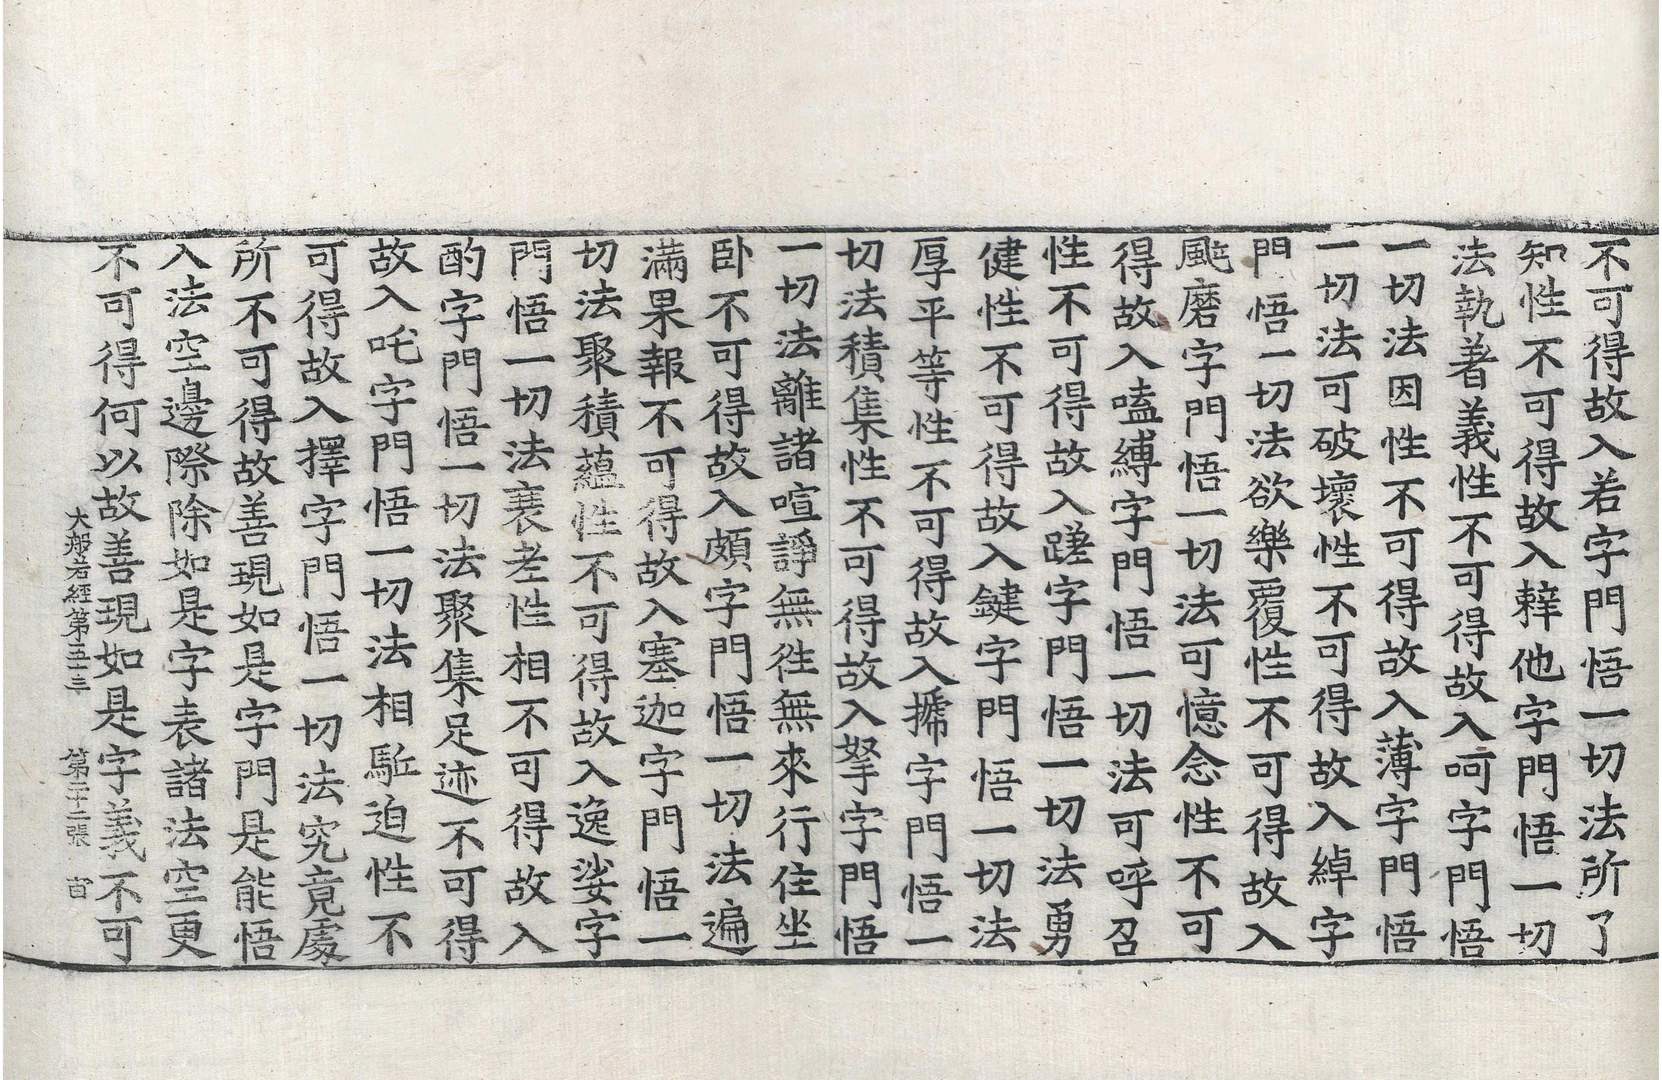 不可得故入若字門悟一切法所了
知性不可得故入辢他字門悟一切
法執著義性不可得故入呵字門悟
一切法因性不可得故入薄字門悟
一切法可破壞性不可得故入綽字
門悟一切法欲樂覆性不可得故入
颰磨字門悟一切法可憶念性不可
得故入嗑縛字門悟一切法可呼召
性不可得故入蹉字門悟一切法勇
健性不可得故入鍵字門悟一切法
厚平等性不可得故入搋字門悟一
切法積集性不可得故入拏字門悟
一切法離諸喧諍無往無來行住坐
卧不可得故入頗字門悟一切法遍
滿果報不可得故入塞迦字門悟一
切法聚積蘊性不可得故入逸娑字
門悟一切法衰老性相不可得故入
酌字門悟一切法聚集足迹不可得
故入吒字門悟一切法相駈迫性不
可得故入擇字門悟一切法究竟處
所不可得故善現如是字門是能悟
入法空邊際除如是字表諸法空更
不可得何以故善現如是字義不可
大般若經第五十三 第二十二張